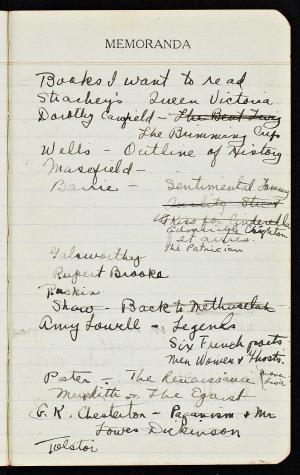 MEMORANDA
Books I want to read
Strachey's Queen Victoria
Dorothy Canfield - The Bent Twig
The Brimming Cup
Wells - Outline of History
Masefield -
Barrie - Sentimental Tommy
Quality Street
A Kiss for Cinderella
Admirable Crichton
et autres.
Galsworthy The Patrician
Rupert Brooke
Ruskin
Shaw - Back to Methuselah
Amy Lowell - Legends
Six French poets
Men Women & Ghosts.
Pater - The Renaissance
Meredith - The Egoist
G. K. Chesterton - Paganism & Mr
Lowes Dickinson
Tolstoi